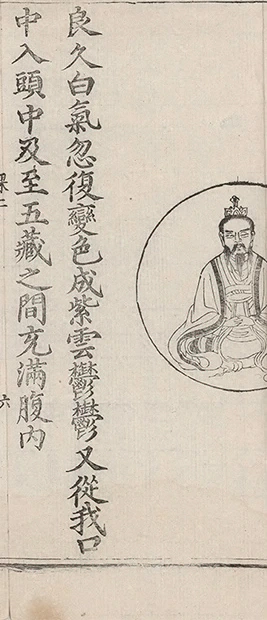 良久白氣忽復變色成紫雲欝欝又從我口
中入頭中及至五藏之間充滿腹內
六